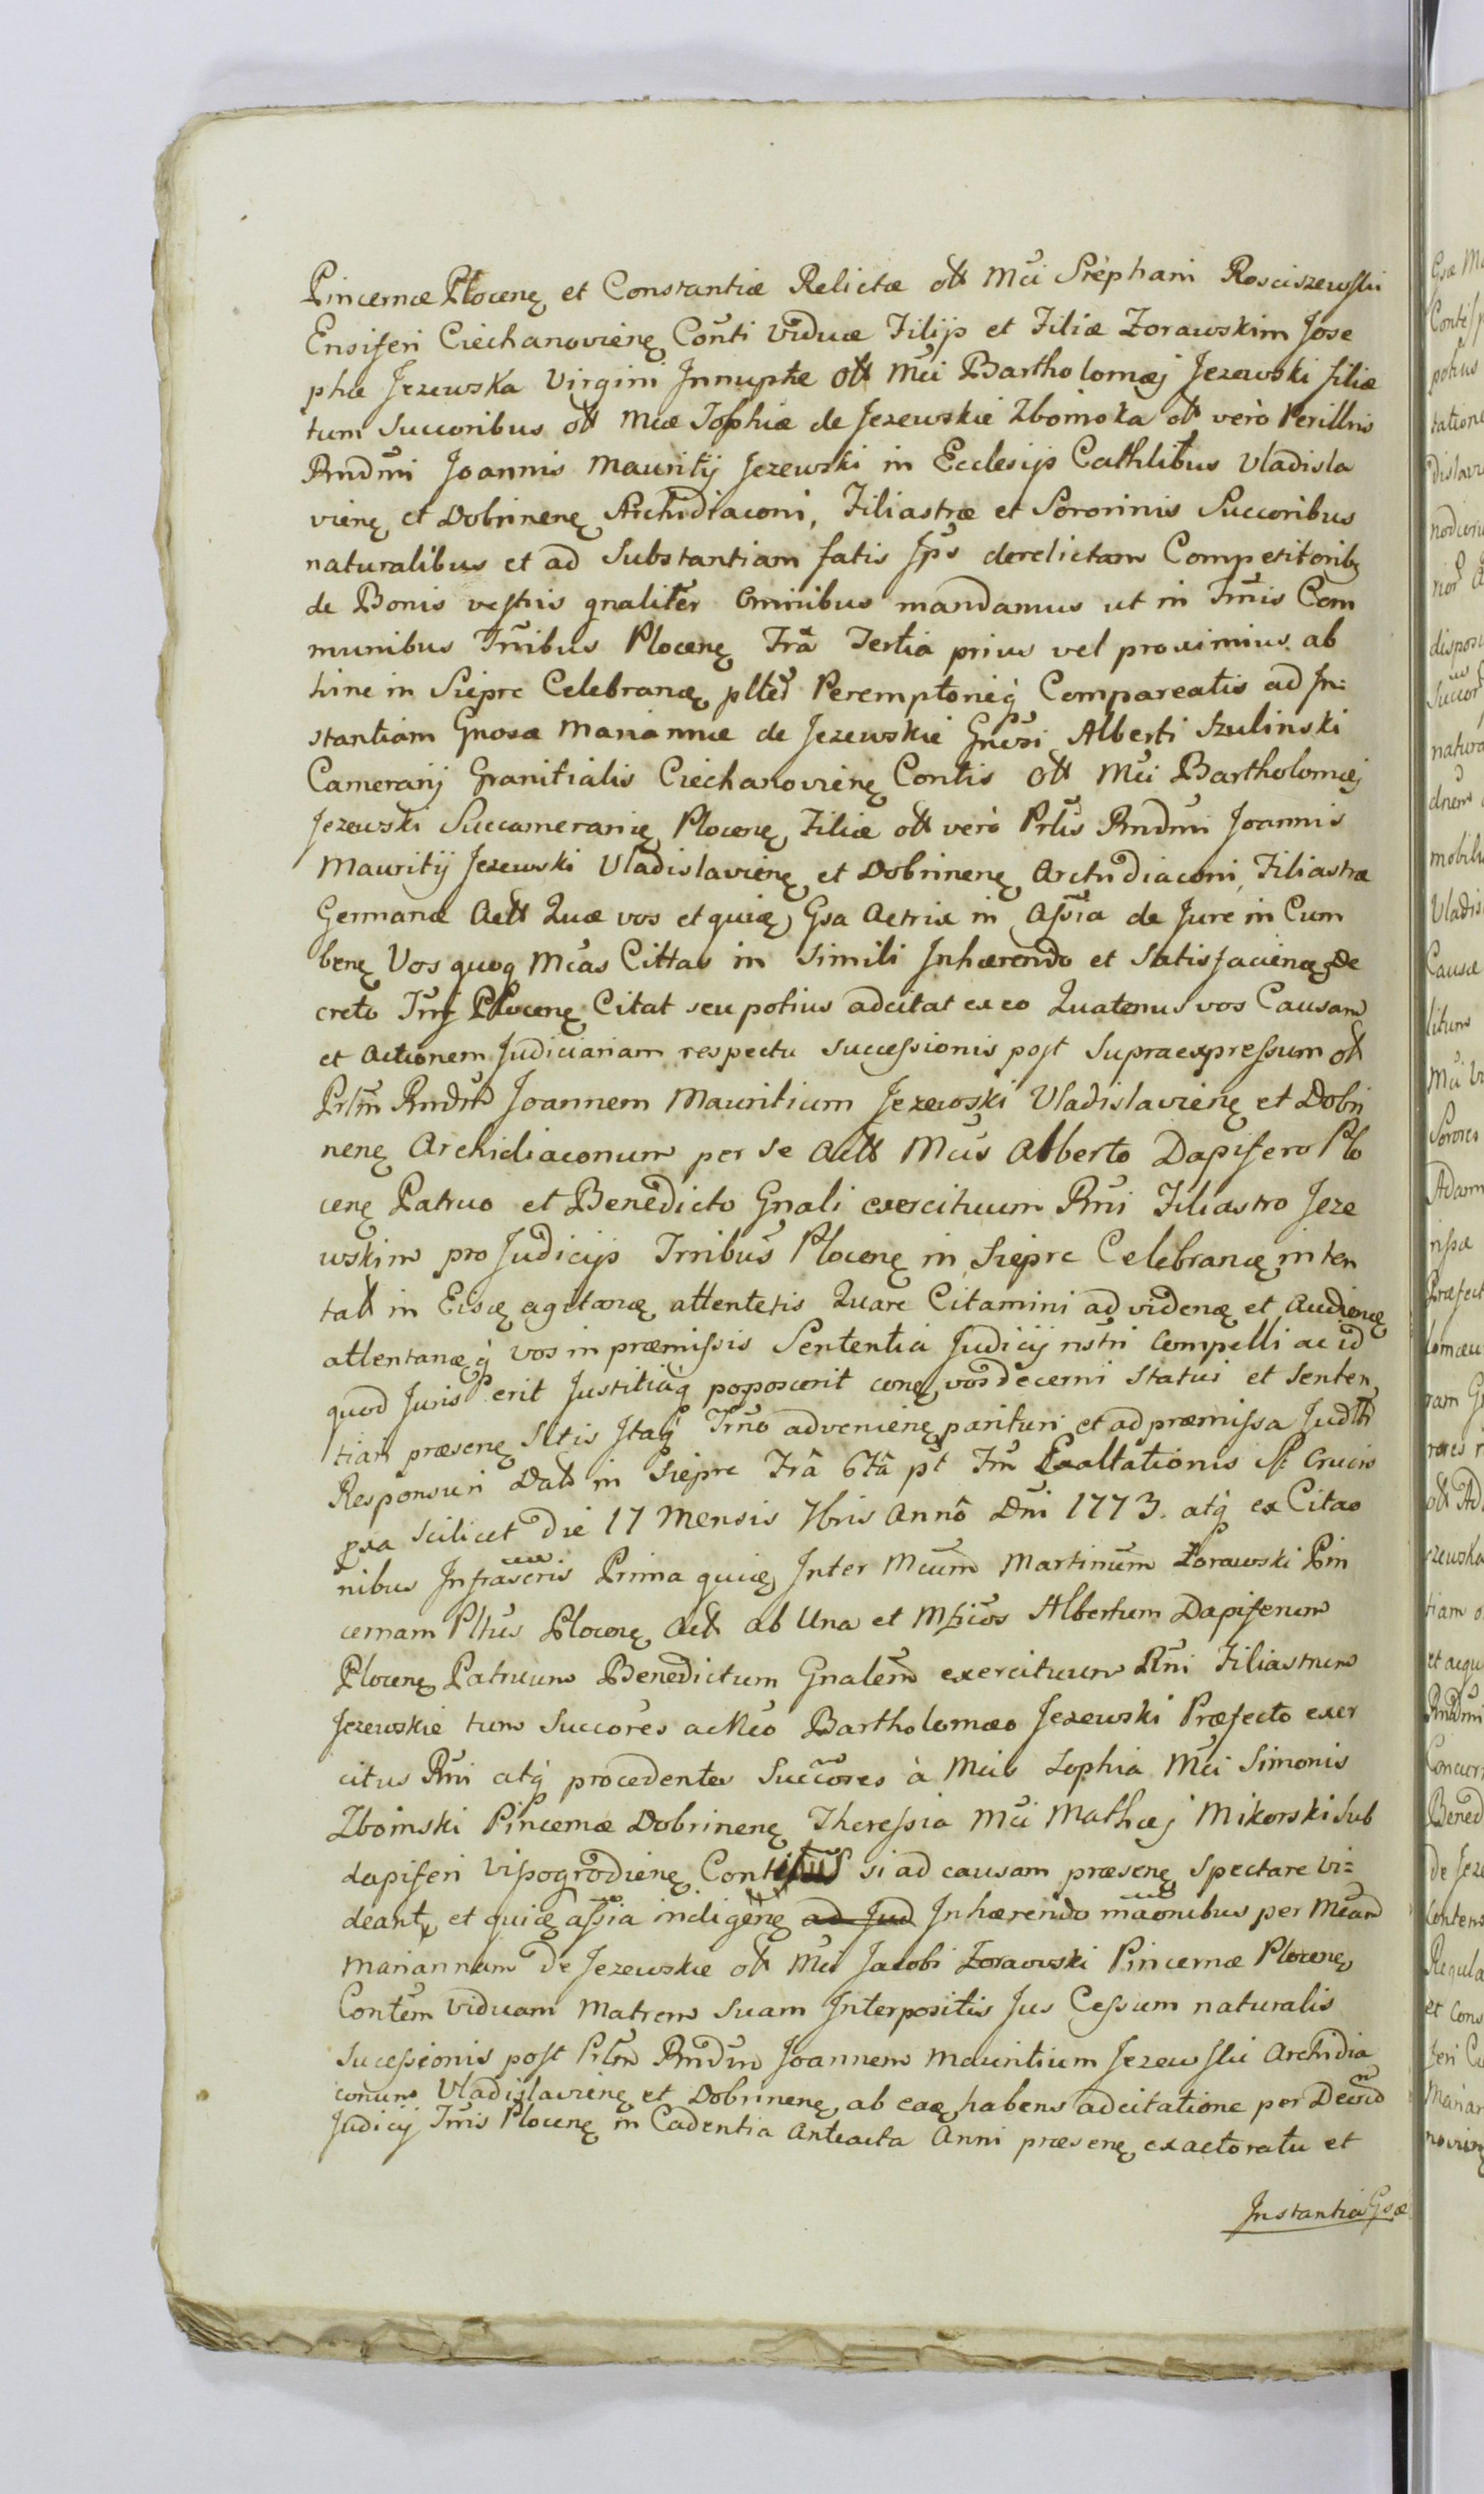 Pincernæ Plocenę et Constantiæ Relictæ ott Mci Stephani Rosciszewski
Ensiferi Ciechanovienę Conti Viduæ Filijs et Filiæ Zorawskim Jose
phæ Jezewska Virgini Innuptæ ott Mci Bartholomæj Jezewski filiæ
tum Succoribus ott Mcæ Sophiæ de Jezewskie Zboinska ott verò Perillris
Rndmi Joannis Mauritij Jezewski in Ecclesijs Cathlibus Vladisla
vienę et Dobrinenę Archidiaconi, Filiastræ et Sororinis Succoribus
naturalibus et ad Substantiam fatis Jps derelictam Competitoribꝫ
de Bonis vestris gnaliter Omnibus mandamus ut in Tmis Com
munibus Trribus Plocenę Fra Tertia prius vel proximius ab
hinc in Sieprc Celebranę pltes Peremptorieq́ Compareatis ad In=
stantiam Gnosæ Mariannæ de Jezewskie Gnosi Alberti Szulinski
Camerarij Granitialis Ciechanovienę Contis ott Mci Bartholomæj
Jezewski Succamerarię Plocenę Filiæ ott verò Prlis Rndmi Joannis
Mauritij Jezewski Vladislavienę et Dobrinenę Archidiaconi, Filiastræ
Germanæ Actt Quæ vos et quię Gsa Actrix in Assia de Jure in Cum
benę Vos quoq Mcas Cittas in Simili Inhærendo et Satisfacienę De
creto Trrj Plocenę Citat seu potius adcitat ex eo Quatenus vos Causam
et Actionem Judiciariam respectu Successionis post Supraexpressum ott
Prlm Rndm Joannem Mauritium Jezewski Vladislavienę et Dobri
nenę Archidiaconum per se Actt Mcis Alberto Dapifero Plo
cenę Patruo et Benedicto Gnali exercituum Rni Filiastro Jeze
wskim pro Judicijs Trribus Plocenę in Sieprc Celebranę inten
tatt in Eisę agitanę attentetis Quare Citamini ad videnę et Audienę
attentanę q́ vos in præmissis Sententia Judicij nstri Compelli ac id
quod Juris erit Justitiaq́ poposcerit cenę vos decerni Statui et Senten
tiari præsenę Sitis Itaq́ Trno advenienę parituri et ad præmissa Judtt
Responsuri Datt in Sieprc Fra 6ta pt Fm Exaltationis S. Crucis
pxa Scilicet Die 17 Mensis 7bris Anno Dni 1773. atq́ ex Citao
nibus Infrascris Prima quię Inter Mcum Martinum Zorawski Pin
cernam Pltus Plocenę Actt ab Una et Mficos Albertum Dapiferum
Plocenę Patruum Benedictum Gnalem exercituum Rni Filiastrum
Jezewskie tum Succores ac Mco Bartholomæo Jezewski Præfecto exer
citus Rni atq́ procedentes Succores à Mcis Sophia Mci Simonis
Zboinski Pincernæ Dobrinenę Theressia Mci Mathæj Mikorski Sub
dapiferi Vissogrodienę Contibus si ad causam præsenę Spectare vi=
deant, et quię assia indigenę ad Jud Inhærendo maonibus per Mcam
Mariannam de Jezewskie ott Mci Jacobi Zorawski Pincernæ Plocenę
Contem Viduam Matrem Suam Interpositis Jus Cessum naturalis
Sucessionis post Prlm Rndm Joannem Mauritium Jezewski Archidia
conum Vladislavienę et Dobrinenę ab eaę habens adcitatione per Decrm
Judicij Trris Plocenę in Cadentia Anteacta Anni præsenę exactoratu et
Instantia Gsæ